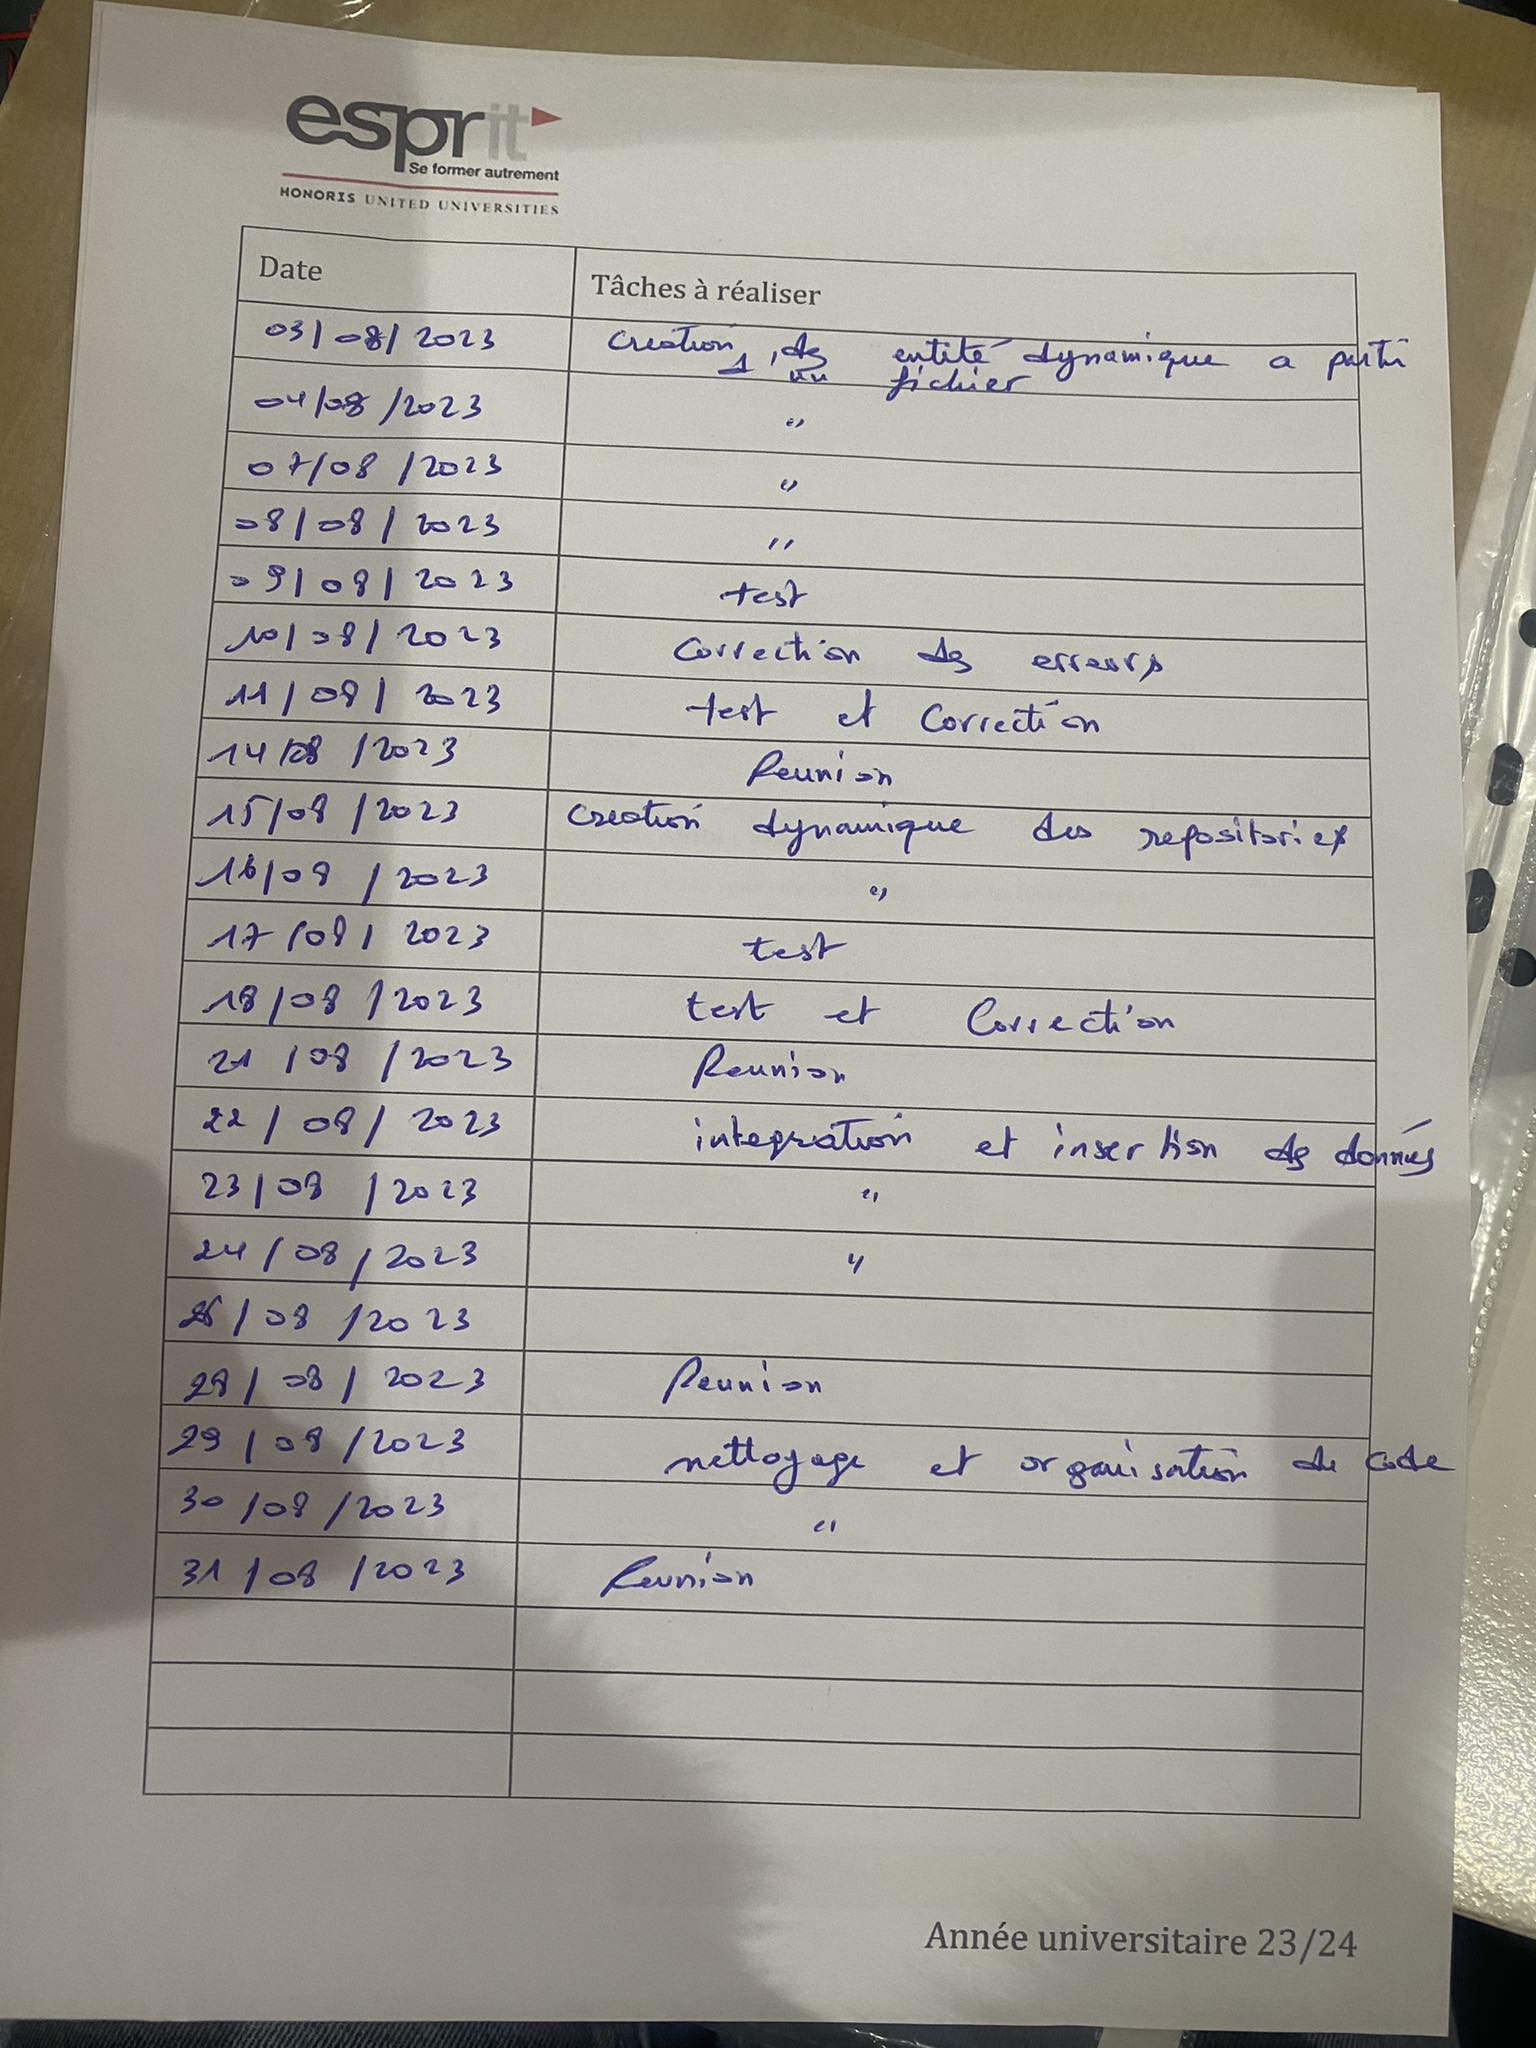 esprit
Se former autrement
HONORIS UNITED UNIVERSITIES
Date Tâches à réaliser
03/08/2023 creation des entité dynamique a partir
d'un fichier
04/08/2023 "
07/08/2023 "
08/08/2023 "
09/08/2023 test
10/08/2023 correction des erreurs
11/08/2023 test et correction
14/08/2023 Reunion
15/08/2023 creation dynamique des repositories
16/08/2023 "
17/08/2023 test
18/08/2023 test et Correction
21/08/2023 Reunion
22/08/2023 integration et insertion des donnés
23/08/2023 "
24/08/2023 "
25/08/2023
28/08/2023 Reunion
29/08/2023 nettoyage et organisation de code
30/08/2023 "
31/08/2023 Reunion
Année universitaire 23/24